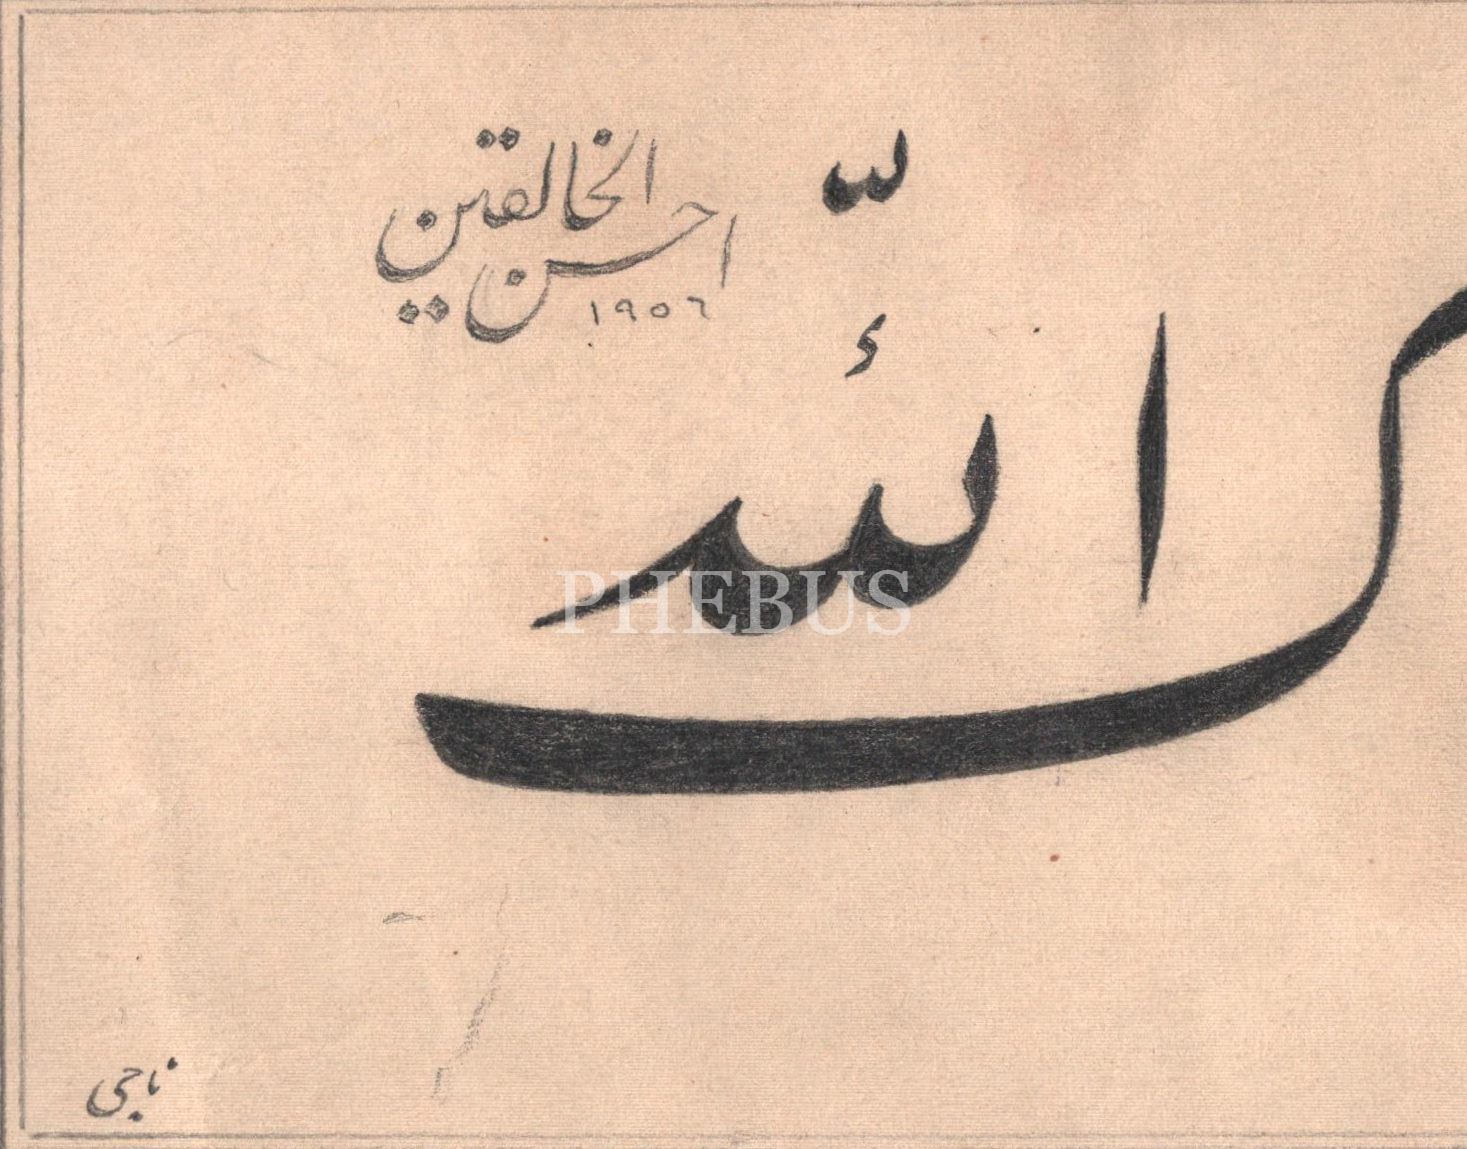 الله
احسن الخالقين
١٩٥٦
PHEBUS
ناجى